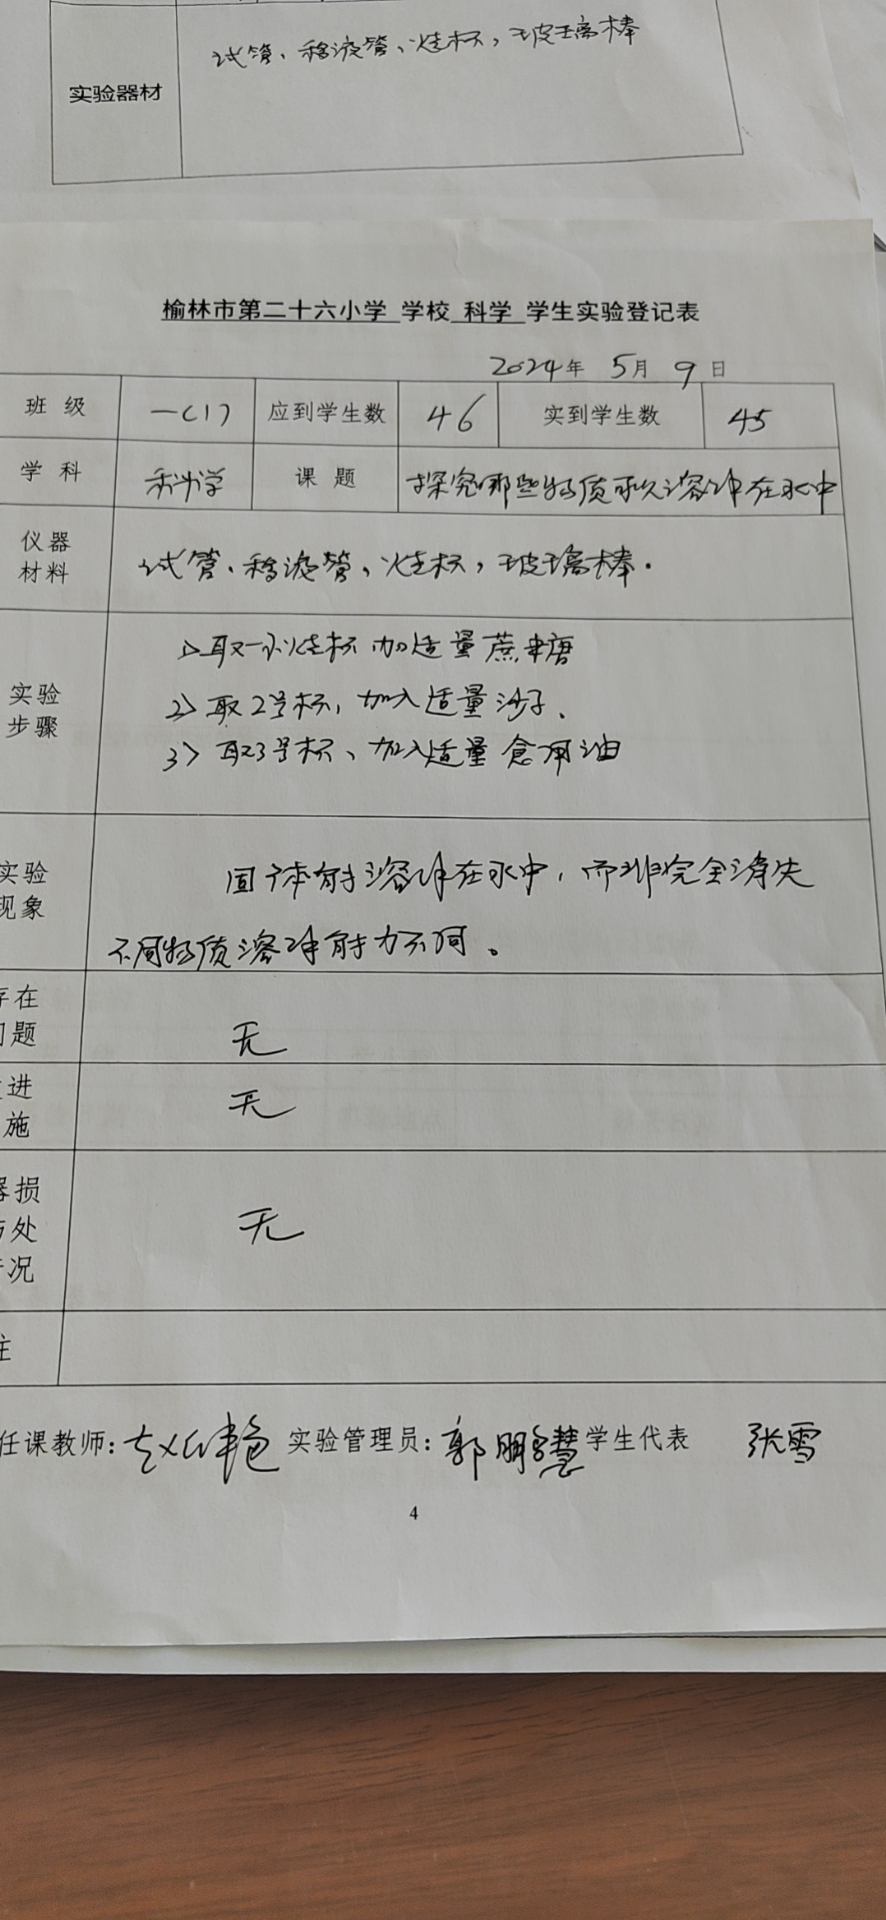 实验器材 试管、移液管、烧杯，玻璃棒
榆林市第二十六小学 学校 科学 学生实验登记表
2024年 5月 9日
班级 一(1) 应到学生数 46 实到学生数 45
学科 科学 课题 探究哪些物质可以溶解在水中
仪器 材料 试管、移液管、烧杯，玻璃棒.
实验 步骤
1> 取一小烧杯加适量蔗糖
2> 取2号杯，加入适量沙子、
3> 取3号杯、加入适量食用油
实验 现象
固体能溶解在水中，而非完全消失
不同物质溶解能力不同。
存在 问题 无
进 施 无
器损 处 况 无
注
任课教师: 实验管理员: 郭 慧 学生代表 张雪
4